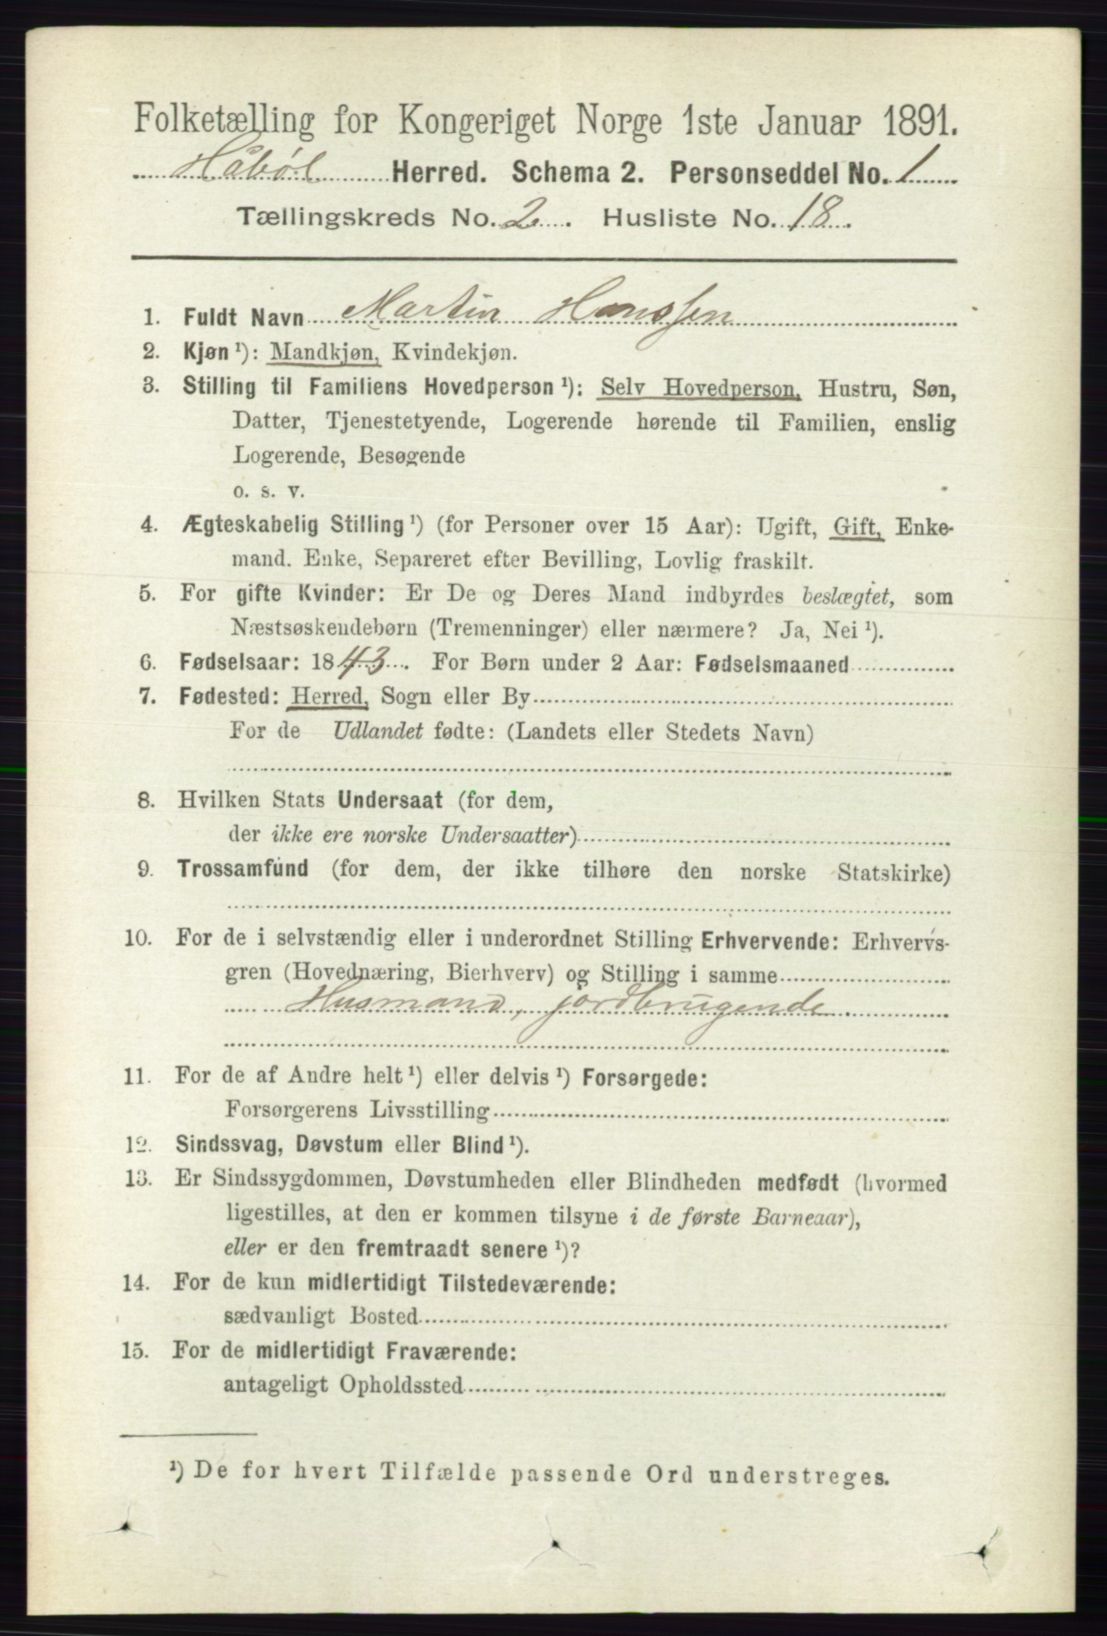 Folketælling for Kongeriget Norge 1ste Januar 1891.
Håbøl Herred. Schema 2. Personseddel No. 1
Tællingskreds No. 2. Husliste No. 18.
1. Fuldt Navn Martin Hanssen
2. Kjøn ¹): Mandkjøn, Kvindekjøn.
3. Stilling til Familiens Hovedperson ¹): Selv Hovedperson, Hustru, Søn,
Datter, Tjenestetyende, Logerende hørende til Familien, enslig
Logerende, Besøgende
o. s. v.
4. Ægteskabelig Stilling ¹) (for Personer over 15 Aar): Ugift, Gift, Enke-
mand. Enke, Separeret efter Bevilling, Lovlig fraskilt.
5. For gifte Kvinder: Er De og Deres Mand indbyrdes beslægtet, som
Næstsøskendebørn (Tremenninger) eller nærmere? Ja, Nei ¹).
6. Fødselsaar: 1843. For Børn under 2 Aar: Fødselsmaaned
7. Fødested: Herred, Sogn eller By
For de Udlandet fødte: (Landets eller Stedets Navn)
8. Hvilken Stats Undersaat (for dem,
der ikke ere norske Undersaatter)
9. Trossamfund (for dem, der ikke tilhøre den norske Statskirke)
10. For de i selvstændig eller i underordnet Stilling Erhvervende: Erhvervs-
gren (Hovednæring, Bierhverv) og Stilling i samme
Husmand, jordbrugende.
11. For de af Andre helt ¹) eller delvis ¹) Forsørgede:
Forsørgerens Livsstilling
12. Sindssvag, Døvstum eller Blind ¹).
13. Er Sindssygdommen, Døvstumheden eller Blindheden medfødt (hvormed
ligestilles, at den er kommen tilsyne i de første Barneaar),
eller er den fremtraadt senere ¹)?
14. For de kun midlertidigt Tilstedeværende:
sædvanligt Bosted
15. For de midlertidigt Fraværende:
antageligt Opholdssted
¹) De for hvert Tilfælde passende Ord understreges.